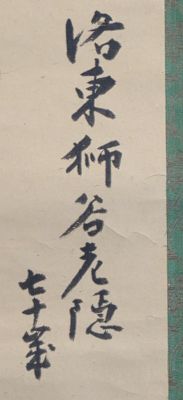 洛東獅谷老隠
七十歳